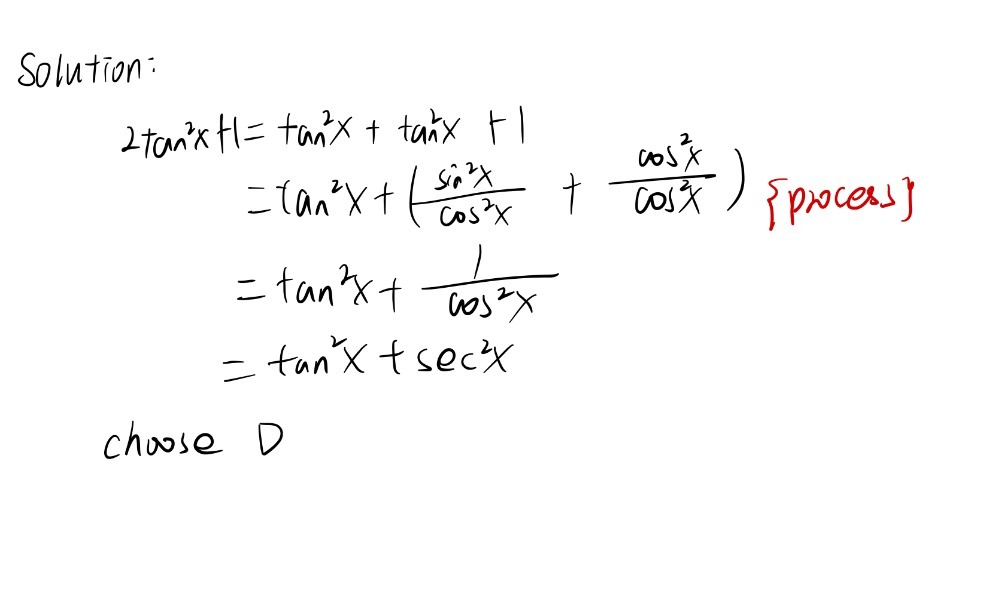 Solution:
2tan²x+1= tan²x + tan²x +1
= tan²x + (sin²x/cos²x + cos²x/cos²x) {process}
= tan²x + 1/cos²x
= tan²x + sec²x
choose D